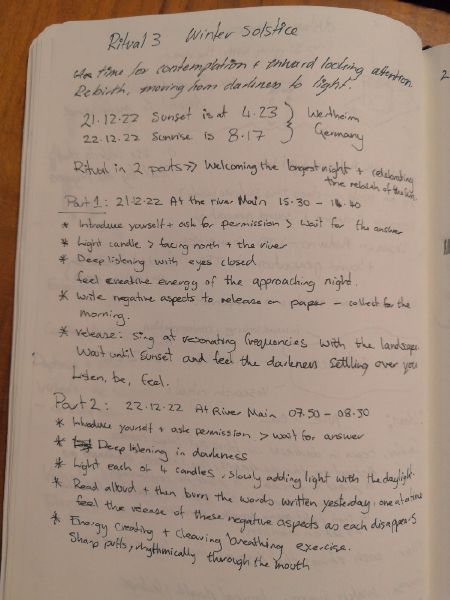 Ritual 3 Winter Solstice
time for contemplation + inward looking attention.
Rebirth, moving from darkness to light.
21.12.22 Sunset is at 4.23 } Wertheim
22.12.22 Sunrise is 8.17 } Germany
Ritual in 2 parts >> Welcoming the longest night + celebrating
the rebirth of the sun.
Part 1: 21.2.22 At the river Main 15.30 - 16.40
* Introduce yourself + ask for permission > wait for the answer
* Light candle > facing north + the river
* Deep listening with eyes closed
feel creative energy of the approaching night.
* Write negative aspects to release on paper - collect for the
morning.
* release: sing at resonating frequencies with the landscape
Wait until sunset and feel the darkness settling over you
Listen, be, feel.
Part 2: 22.12.22 At River Main 07.50 - 08.30
* Introduce yourself + ask permission > wait for answer
* Deep listening in darkness
* Light each of 4 candles, slowly adding light with the daylight.
* Read alloud + then burn the words written yesterday, one at a time
feel the release of these negative aspects as each disappears
* Energy creating + clearing breathing exercise.
Sharp puffs, rhythmically through the mouth
2